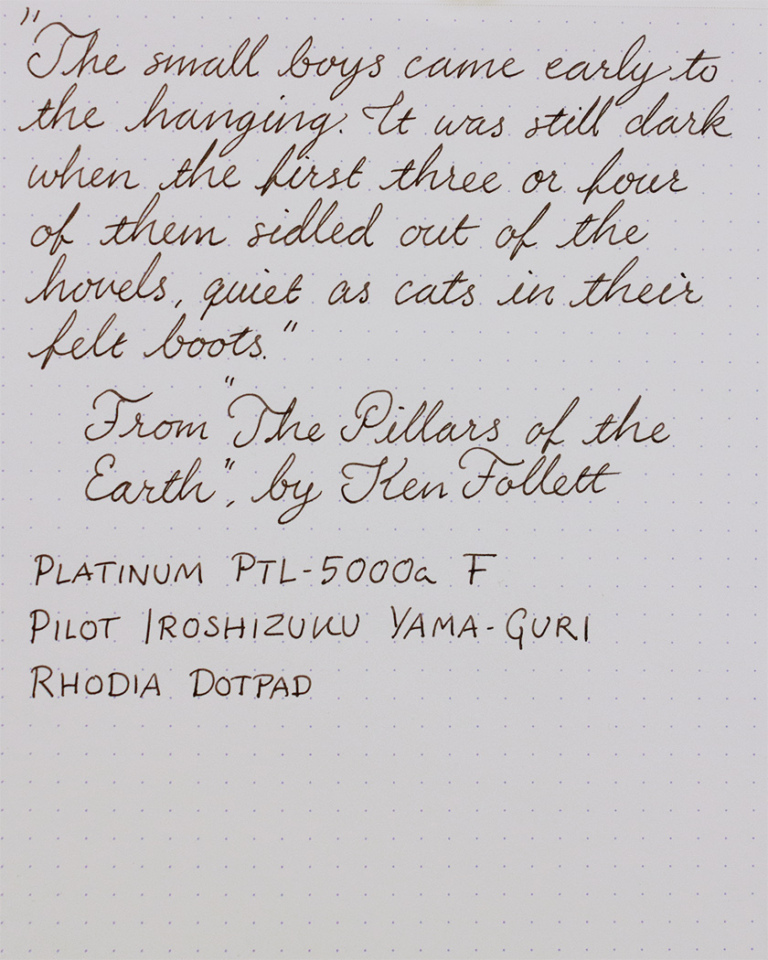 "The small boys came early to
the hanging. It was still dark
when the first three or four
of them sidled out of the
hovels, quiet as cats in their
felt boots."
From "The Pillars of the
Earth", by Ken Follett
PLATINUM PTL-5000a F
PILOT IROSHIZUKU YAMA-GURI
RHODIA DOTPAD